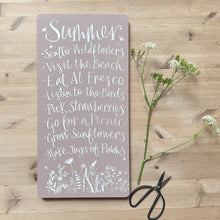 Summer
Scatter Wildflowers
Visit the Beach
Eat Al Fresco
Listen to the Birds
Pick Strawberries
Go for a Picnic
Grow Sunflowers
Make Jugs of Pimms